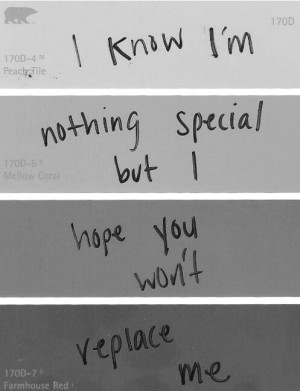 170D
I Know I'm
170D-4
Peach Tile
nothing Special
but I
170D-5
Mellow Coral
hope you
won't
replace
me
170D-7
Farmhouse Red